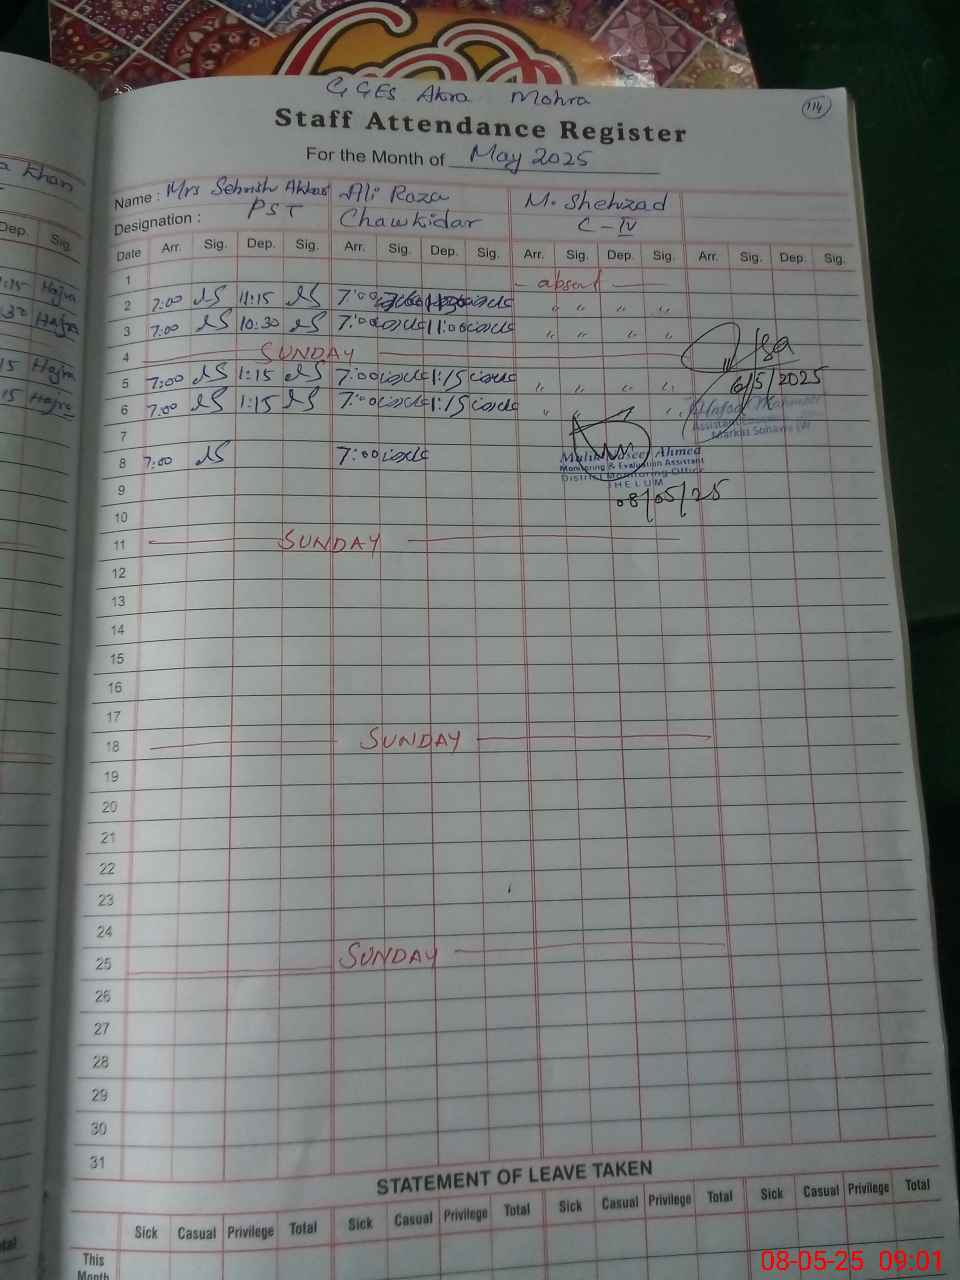 G GES Akra Mohra
114
Staff Attendance Register
For the Month of May 2025
Name : Mrs Sehrish Akhtar Ali Raza M. Shehzad
Designation : PST Chawkidar C - IV
Date Arr. Sig. Dep. Sig. Arr. Sig. Dep. Sig. Arr. Sig. Dep. Sig. Arr. Sig. Dep. Sig.
1 absent
2 7:00 11:15 7:00 " " " "
3 7:00 10:30 7:00 11:00 " " " "
4 SUNDAY
5 7:00 1:15 7:00 1:15 " " " "
6 7:00 1:15 7:00 1:15 " " " "
6/5/2025
7
8 7:00 7:00
Ahmed
Monitoring & Evaluation Assistant
District Monitoring Office
JHELUM
08/05/25
9
10
11 SUNDAY
12
13
14
15
16
17
18 SUNDAY
19
20
21
22
23
24
25 SUNDAY
26
27
28
29
30
31
STATEMENT OF LEAVE TAKEN
Sick Casual Privilege Total Sick Casual Privilege Total Sick Casual Privilege Total Sick Casual Privilege Total
This
Month
Khan
Dep. Sig.
1:15 Hajra
Hajra
15 Hajra
15 Hajra
08-05-25 09:01